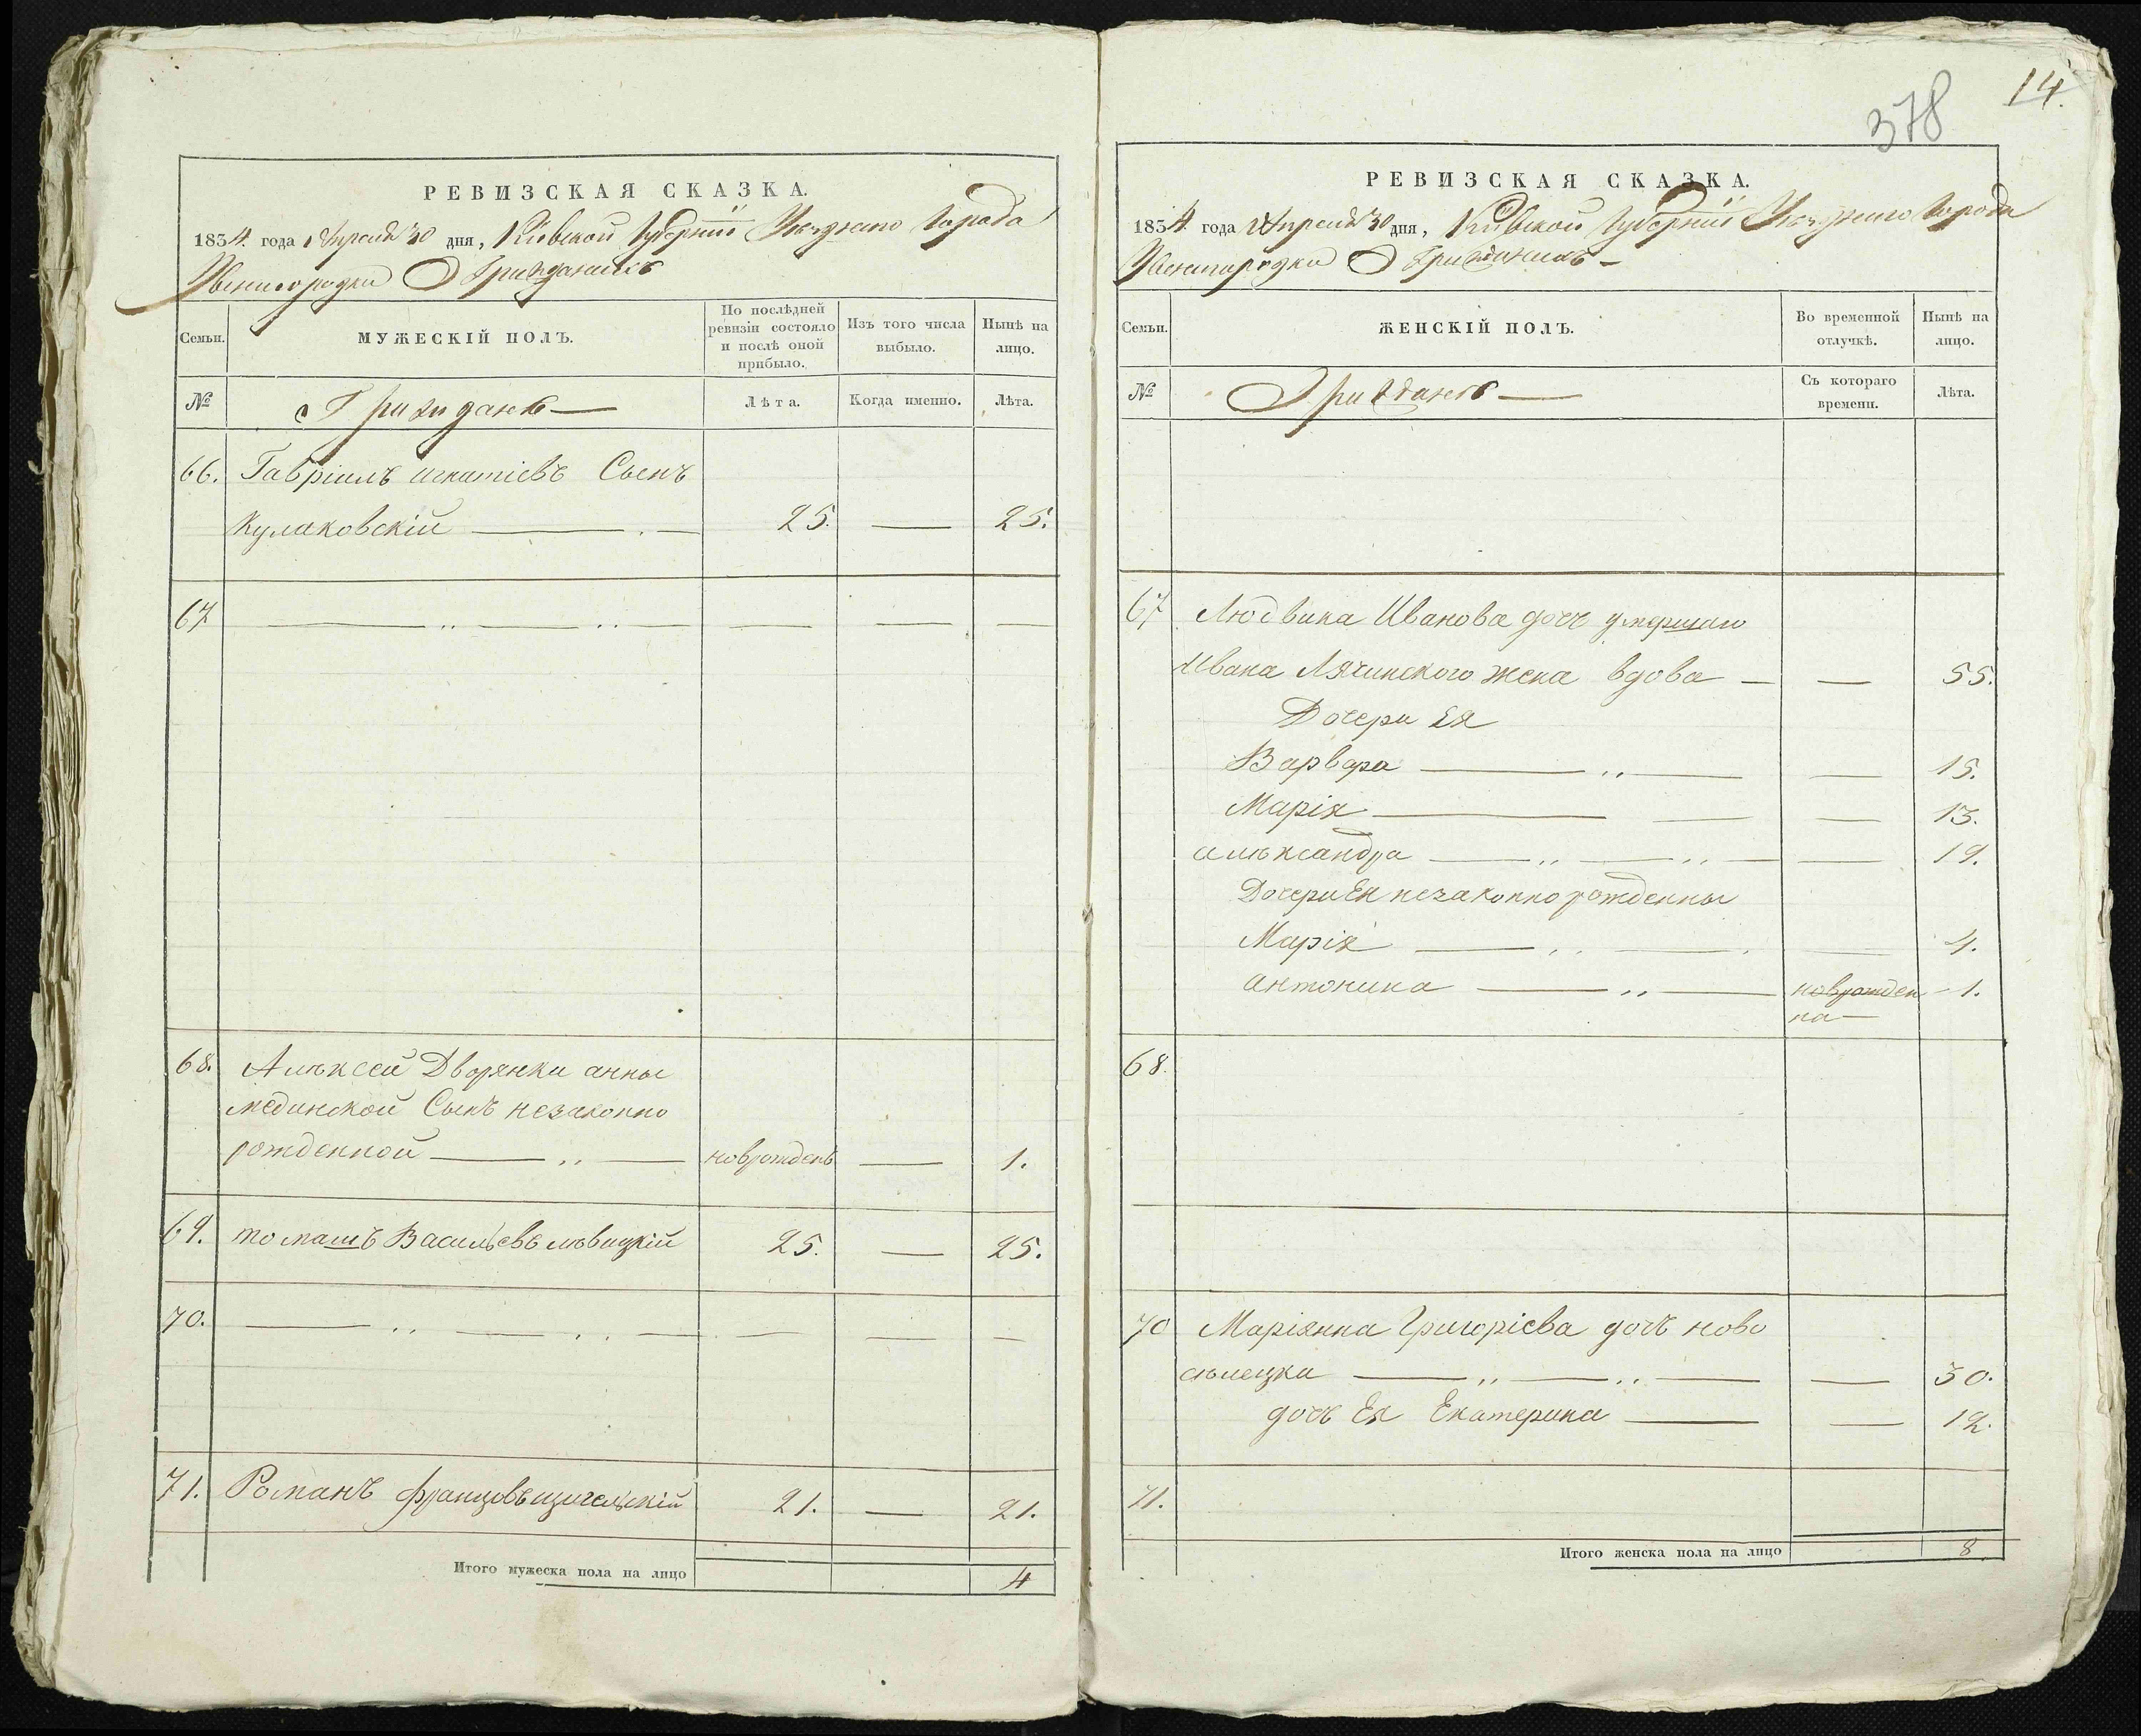 РЕВИЗСКАЯ СКАЗКА.
1834. года Апреля 30 дня, Кіевской Губерніи Уезднаго Города
Звенигородки О Гражданахъ
Семьи.
МУЖЕСКІЙ ПОЛЪ.
По послѣдней ревизіи состояло и послѣ оной прибыло.
Изъ того числа выбыло.
Нынѣ на лицо.
№
Гражданъ
Лѣта.
Когда именно.
Лѣта.
66. Гавріилъ игнатіевъ Сынъ
Кулаковскій 25. 25.
67
68. Алѣксей Дворянки анны
мединской Сынъ незаконно
рожденной новрожденъ 1.
69. томашъ Васильевъ лѣвицкій 25. 25.
70.
71. Романъ францовъ 21. 21.
Итого мужеска пола на лицо 4
378
14.
РЕВИЗСКАЯ СКАЗКА.
1834. года Апреля 30 дня, Кіевской Губерніи Уезднаго Города
Звенигородки О Гражданахъ
Семьи.
ЖЕНСКІЙ ПОЛЪ.
Во временной отлучкѣ.
Нынѣ на лицо.
№
Гражданъ
Съ котораго времени.
Лѣта.
67 Людвика Иванова дочь умершаго
Ивана Лячинского жена вдова 55.
Дочери Ея
Варвара 15.
Марія 13.
алѣксандра 19.
Дочери Ея незаконно рожденны
Марія 4.
антонина новрожден 1.
на
68.
70 Маріянна Григоріева дочь ново
сѣлецка 30.
дочь Ея Екатерина 12.
71.
Итого женска пола на лицо 8